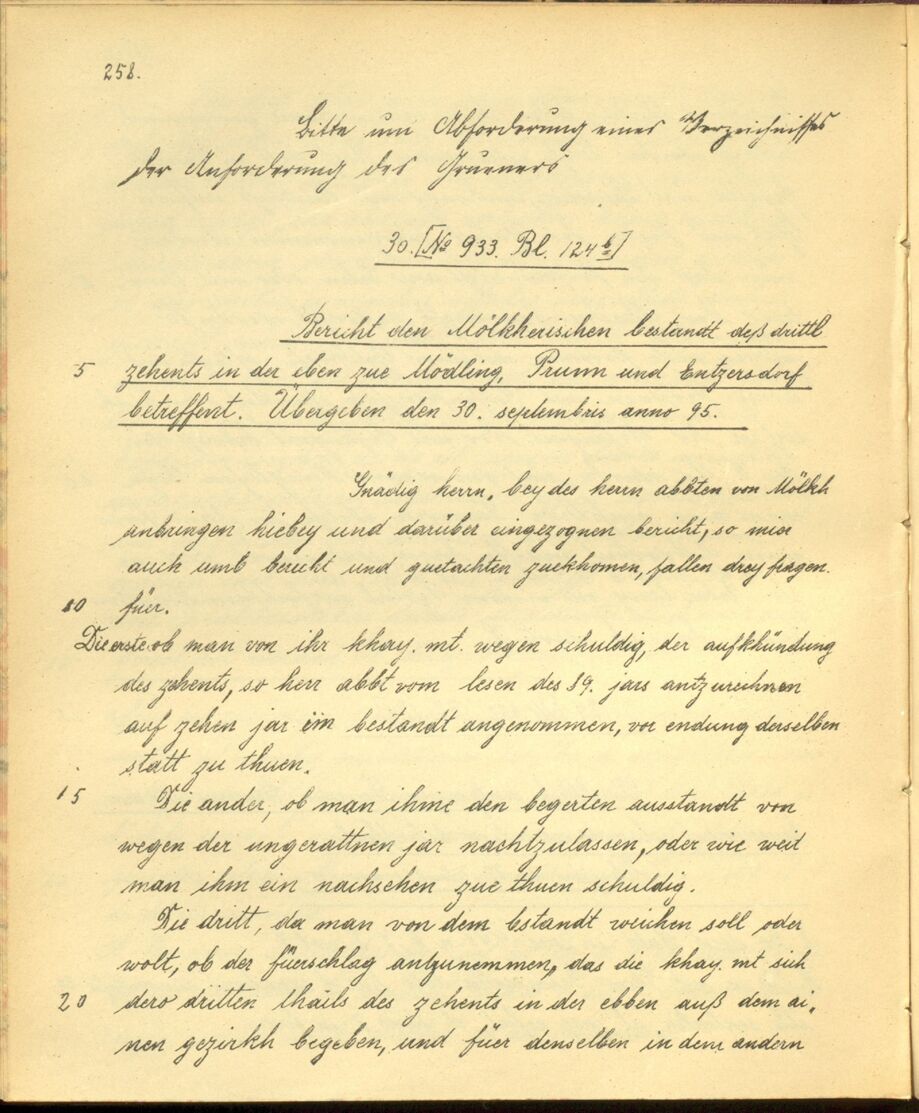 258.
Bitte um Abforderung eines Verzeichnisses
der Anforderung des Grueners
30. [No 933. Bl. 124b]
Bericht den Mölkherischen bestandt deß drittl
5 zehents in der eben zue Mödling, Prunn und Entzersdorf
betreffent. Übergeben den 30. septembris anno 95.
Gnädig herrn, bey des herrn abbten von Mölkh
anbringen hiebey und darüber eingezognen bericht, so mir
auch umb bericht und guetachten zuekhomen, fallen drey fragen
10 füer.
Die erste ob man von ihr khay. mt. wegen schuldig, der aufkhündung
des zehents, so herr abbt vom lesen des 89. jars antzuraichnen
auf zehen jar im bestandt angenommen, vor endung derselben
statt zu thuen.
15 Die ander, ob man ihme den begerten ausstandt von
wegen der ungerattnen jar nachtzulassen, oder wie weit
man ihm ein nachsehen zue thuen schuldig.
Die dritt, da man von dem bstandt weichen soll oder
wolt, ob der füerschlag antzunemmen, das die khay. mt sich
20 dero dritten thails des zehents in der ebben auß dem ai„
nen gezirkh begeben, und füer denselben in dem andern